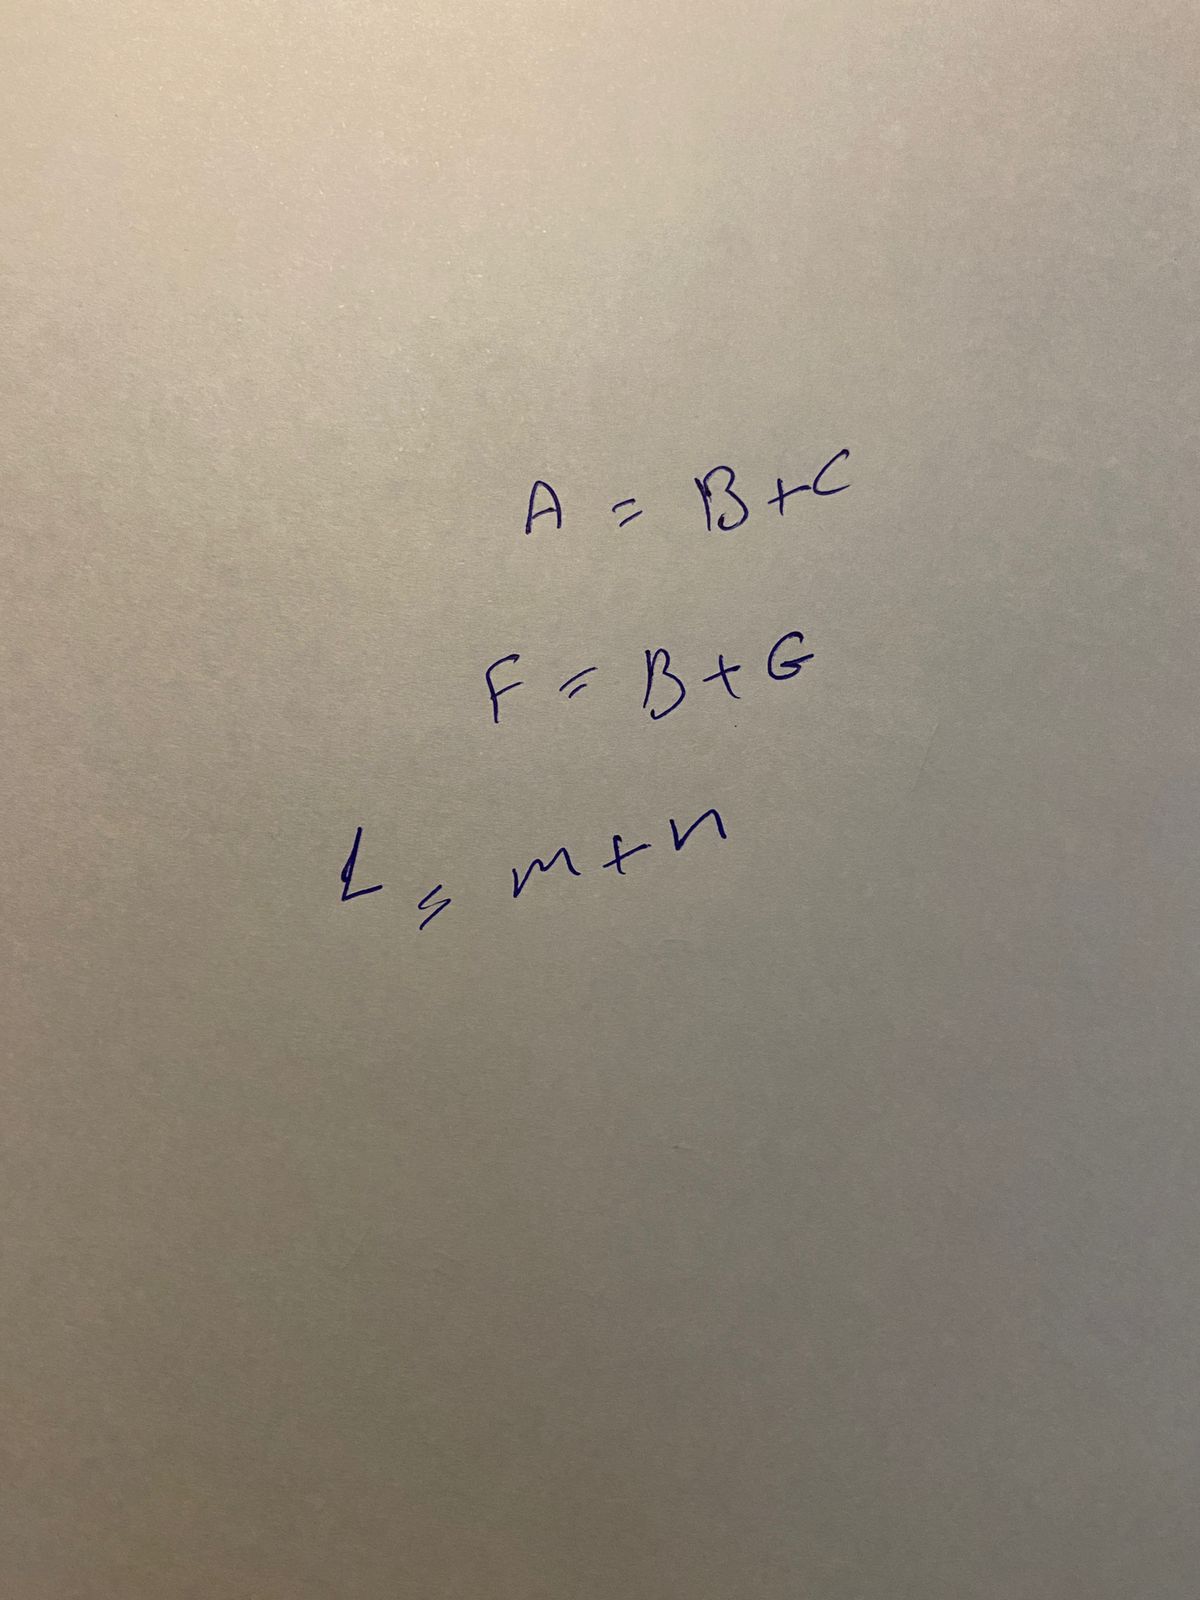 A = B+C
F = B+G
L = m+n